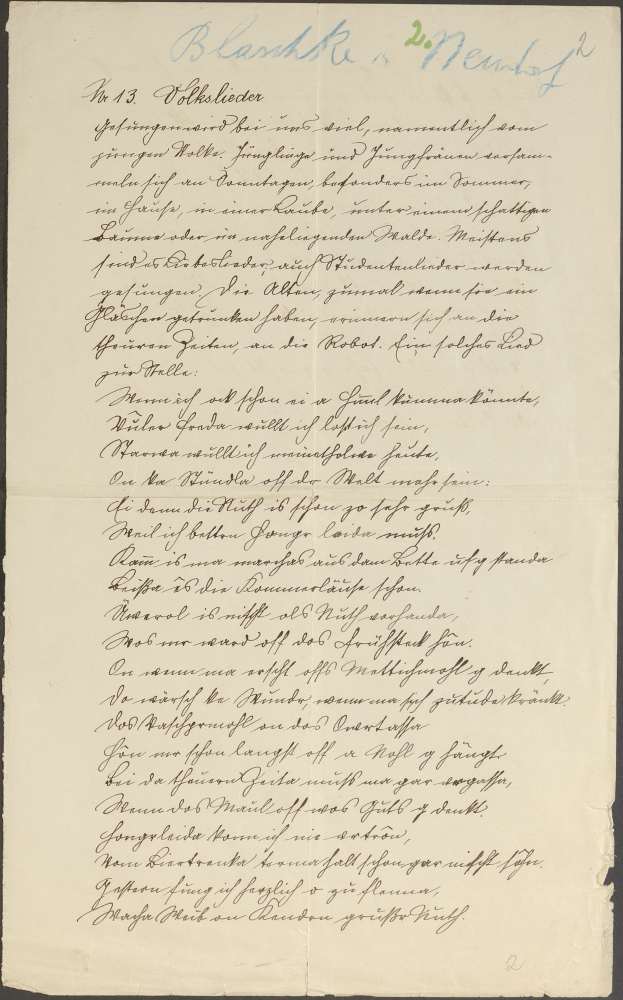 Blaschke
2.
2
Nr 13. Volkslieder
Gesungen wird bei uns viel, namentlich vom
jungen Volke. Jünglinge und Jungfrauen versam-
meln sich an Sonntagen, besonders im Sommer,
im Hause, in einer Laube, unter einem schattigen
Baume oder im naheliegenden Walde. Meistens
sind es Liebeslieder, auch Studentenlieder werden
gesungen. Die Alten, zumal wenn sie ein
Gläschen getrunken haben, erinnern sich an die
theuren Zeiten, an die Robot. Ein solches Lied
zur Stelle:
Wenn ich ock schon ei a Himl kumma könnte,
Vuler Freda wullt ich lostich sein,
Starwa wullt ich meinetholwe heute,
On ka Stündla off dr Welt mahr sein:
Ei dann die Nuth is schon zo sehr gruß,
Weil ich bettrn Hongr leida muß.
Kaum is ma marchas aus dam Bette ufg standa
Beißa ës die Kommerläuse schon.
Üwerol is nischt ols Nuth vorhanda,
Wos mr ward off dos Frühsteck hön.
On wenn ma erscht offs Mettichmohl g denkt
Do wärsch ke Wundr, wenn ma sich zutude kränkt.
Dos Vaschprmohl on dos Owrtassa
Hön mr schon langst off a Nohl g hängt
Bei da theuern Zeita muß ma gar vrgassa,
Wenn dos Maul off wos Guts g denkt.
Hongrleida konn ich nie vrtrön,
Vom Biertrenka torma halt schon gar nischt sön.
Gestern fung ich herzlich o zu flenna,
Wacha Weib on Kendrn grußr Nuth.
2